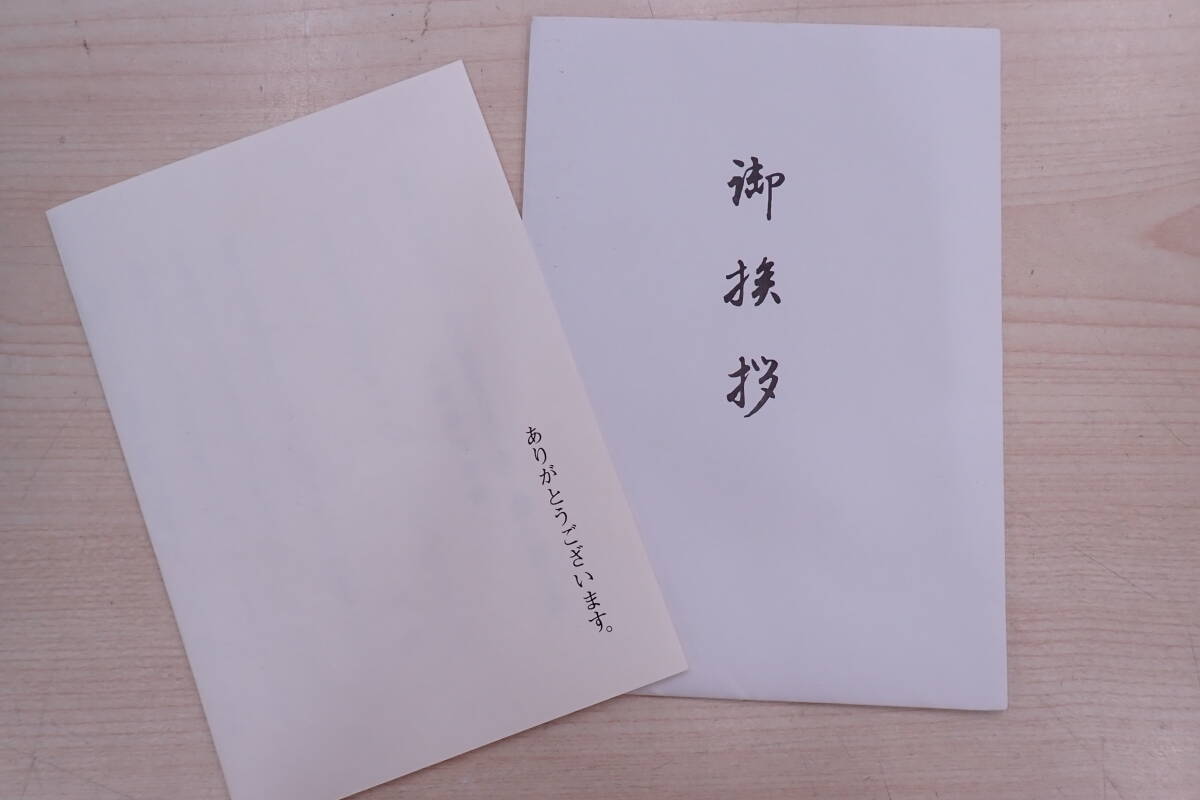 御挨拶
ありがとうございます。